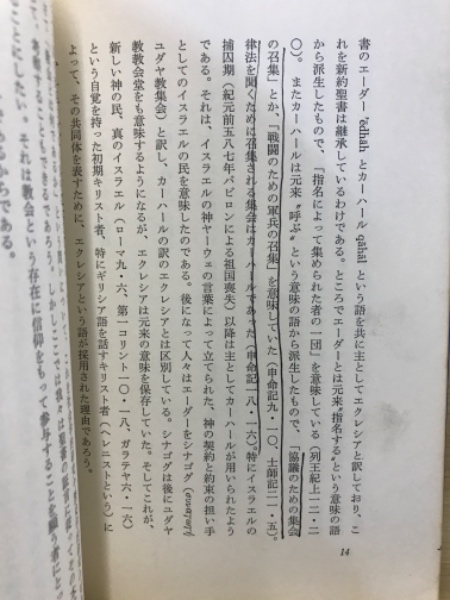 書のエーダー 'ēdhāh とカーハール qāhāl という語を共にエクレシアと訳しており、こ
れを新約聖書は継承しているわけである。ところでエーダーとは元来〝指名する〟という意味の語
から派生したもので、「指名によって集められた者の一団」を意味している(列王紀上一二・二
〇)。またカーハールは元来〝呼ぶ〟という意味の語から派生したもので、「協議のための集会
の召集」とか、「戦闘のための軍兵の召集」を意味していた(申命記九・一〇、士師記二一・五)。
律法を聞くために召集される集会はカーハールであった(申命記一八・一六)。特にイスラエルの
捕囚期(紀元前五八七年バビロンによる祖国喪失)以降は主としてカーハールが用いられたよう
である。それは、イスラエルの神ヤーウェの言葉によって立てられた、神の契約と約束の担い手
としてのイスラエルの民を意味したのである。後になって人々はエーダーをシナゴグ(
ユダヤ教集会)と訳し、カーハールの訳のエクレシアとは区別している。シナゴグは後にユダヤ
教教会堂をも意味するようになるが、エクレシアは元来の意味を保存していた。そしてこれが、
新しい神の民、真のイスラエル(ローマ九・六、第一コリント一〇・一八、ガラテヤ六・一六)
という自覚を持った初期キリスト者、特にギリシア語を話すキリスト者(ヘレニストという)に
よって、その共同体を表すために、エクレシアという語が採用された理由であろう。
14
ことにしたい。それは教会という存在に信仰をもって参与することを願う者にとっ
であるからである。